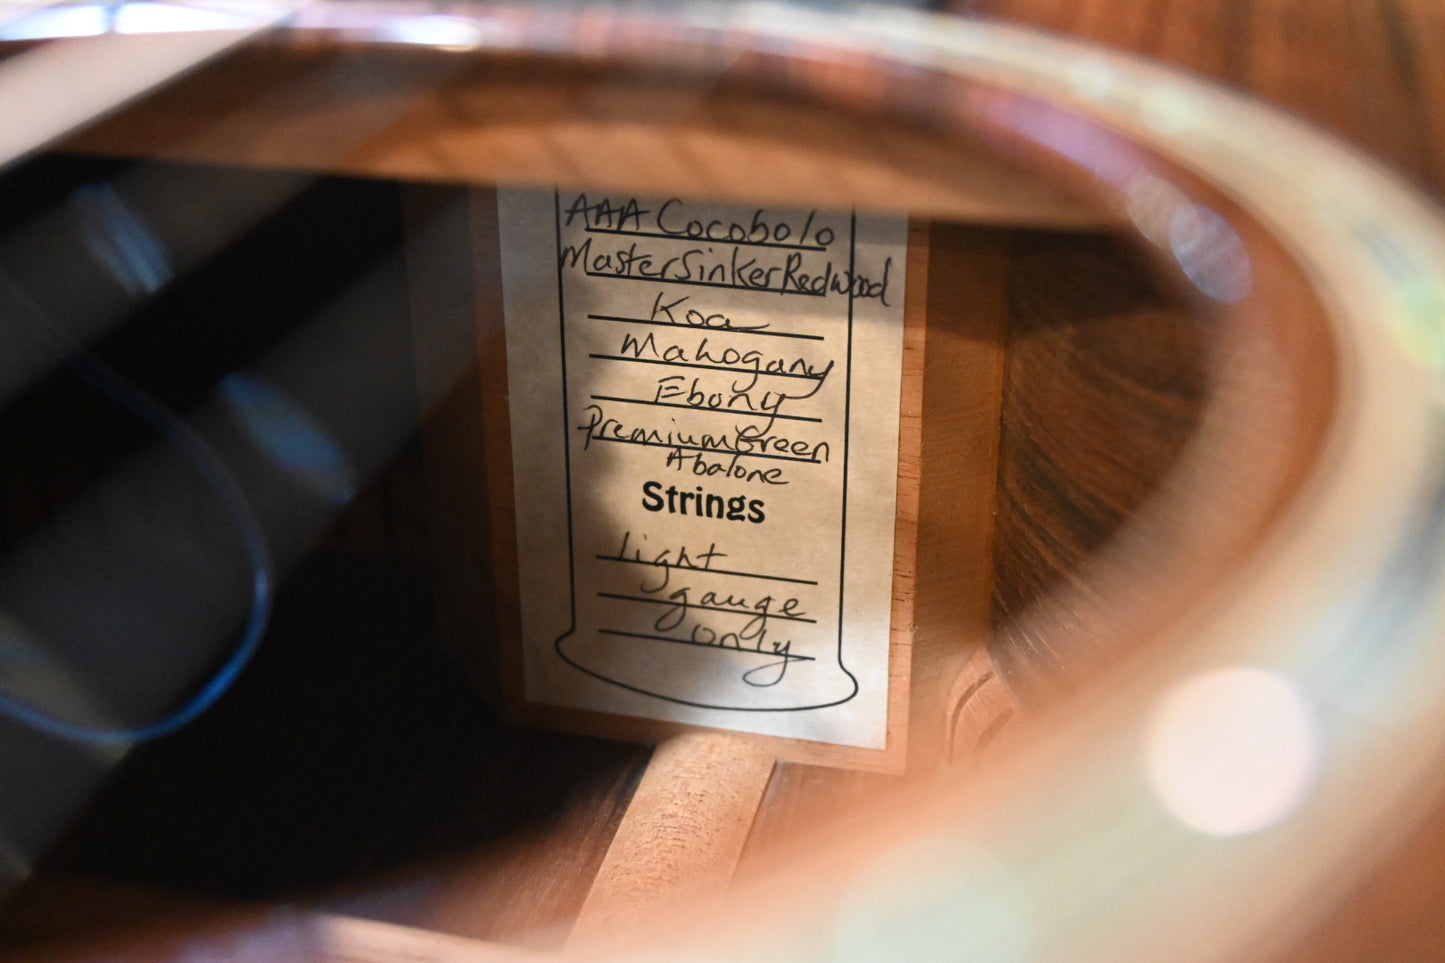 AAA Cocobolo
Master Sinker Redwood
Koa
Mahogany
Ebony
Premium Green
Abalone
Strings
light
gauge
only